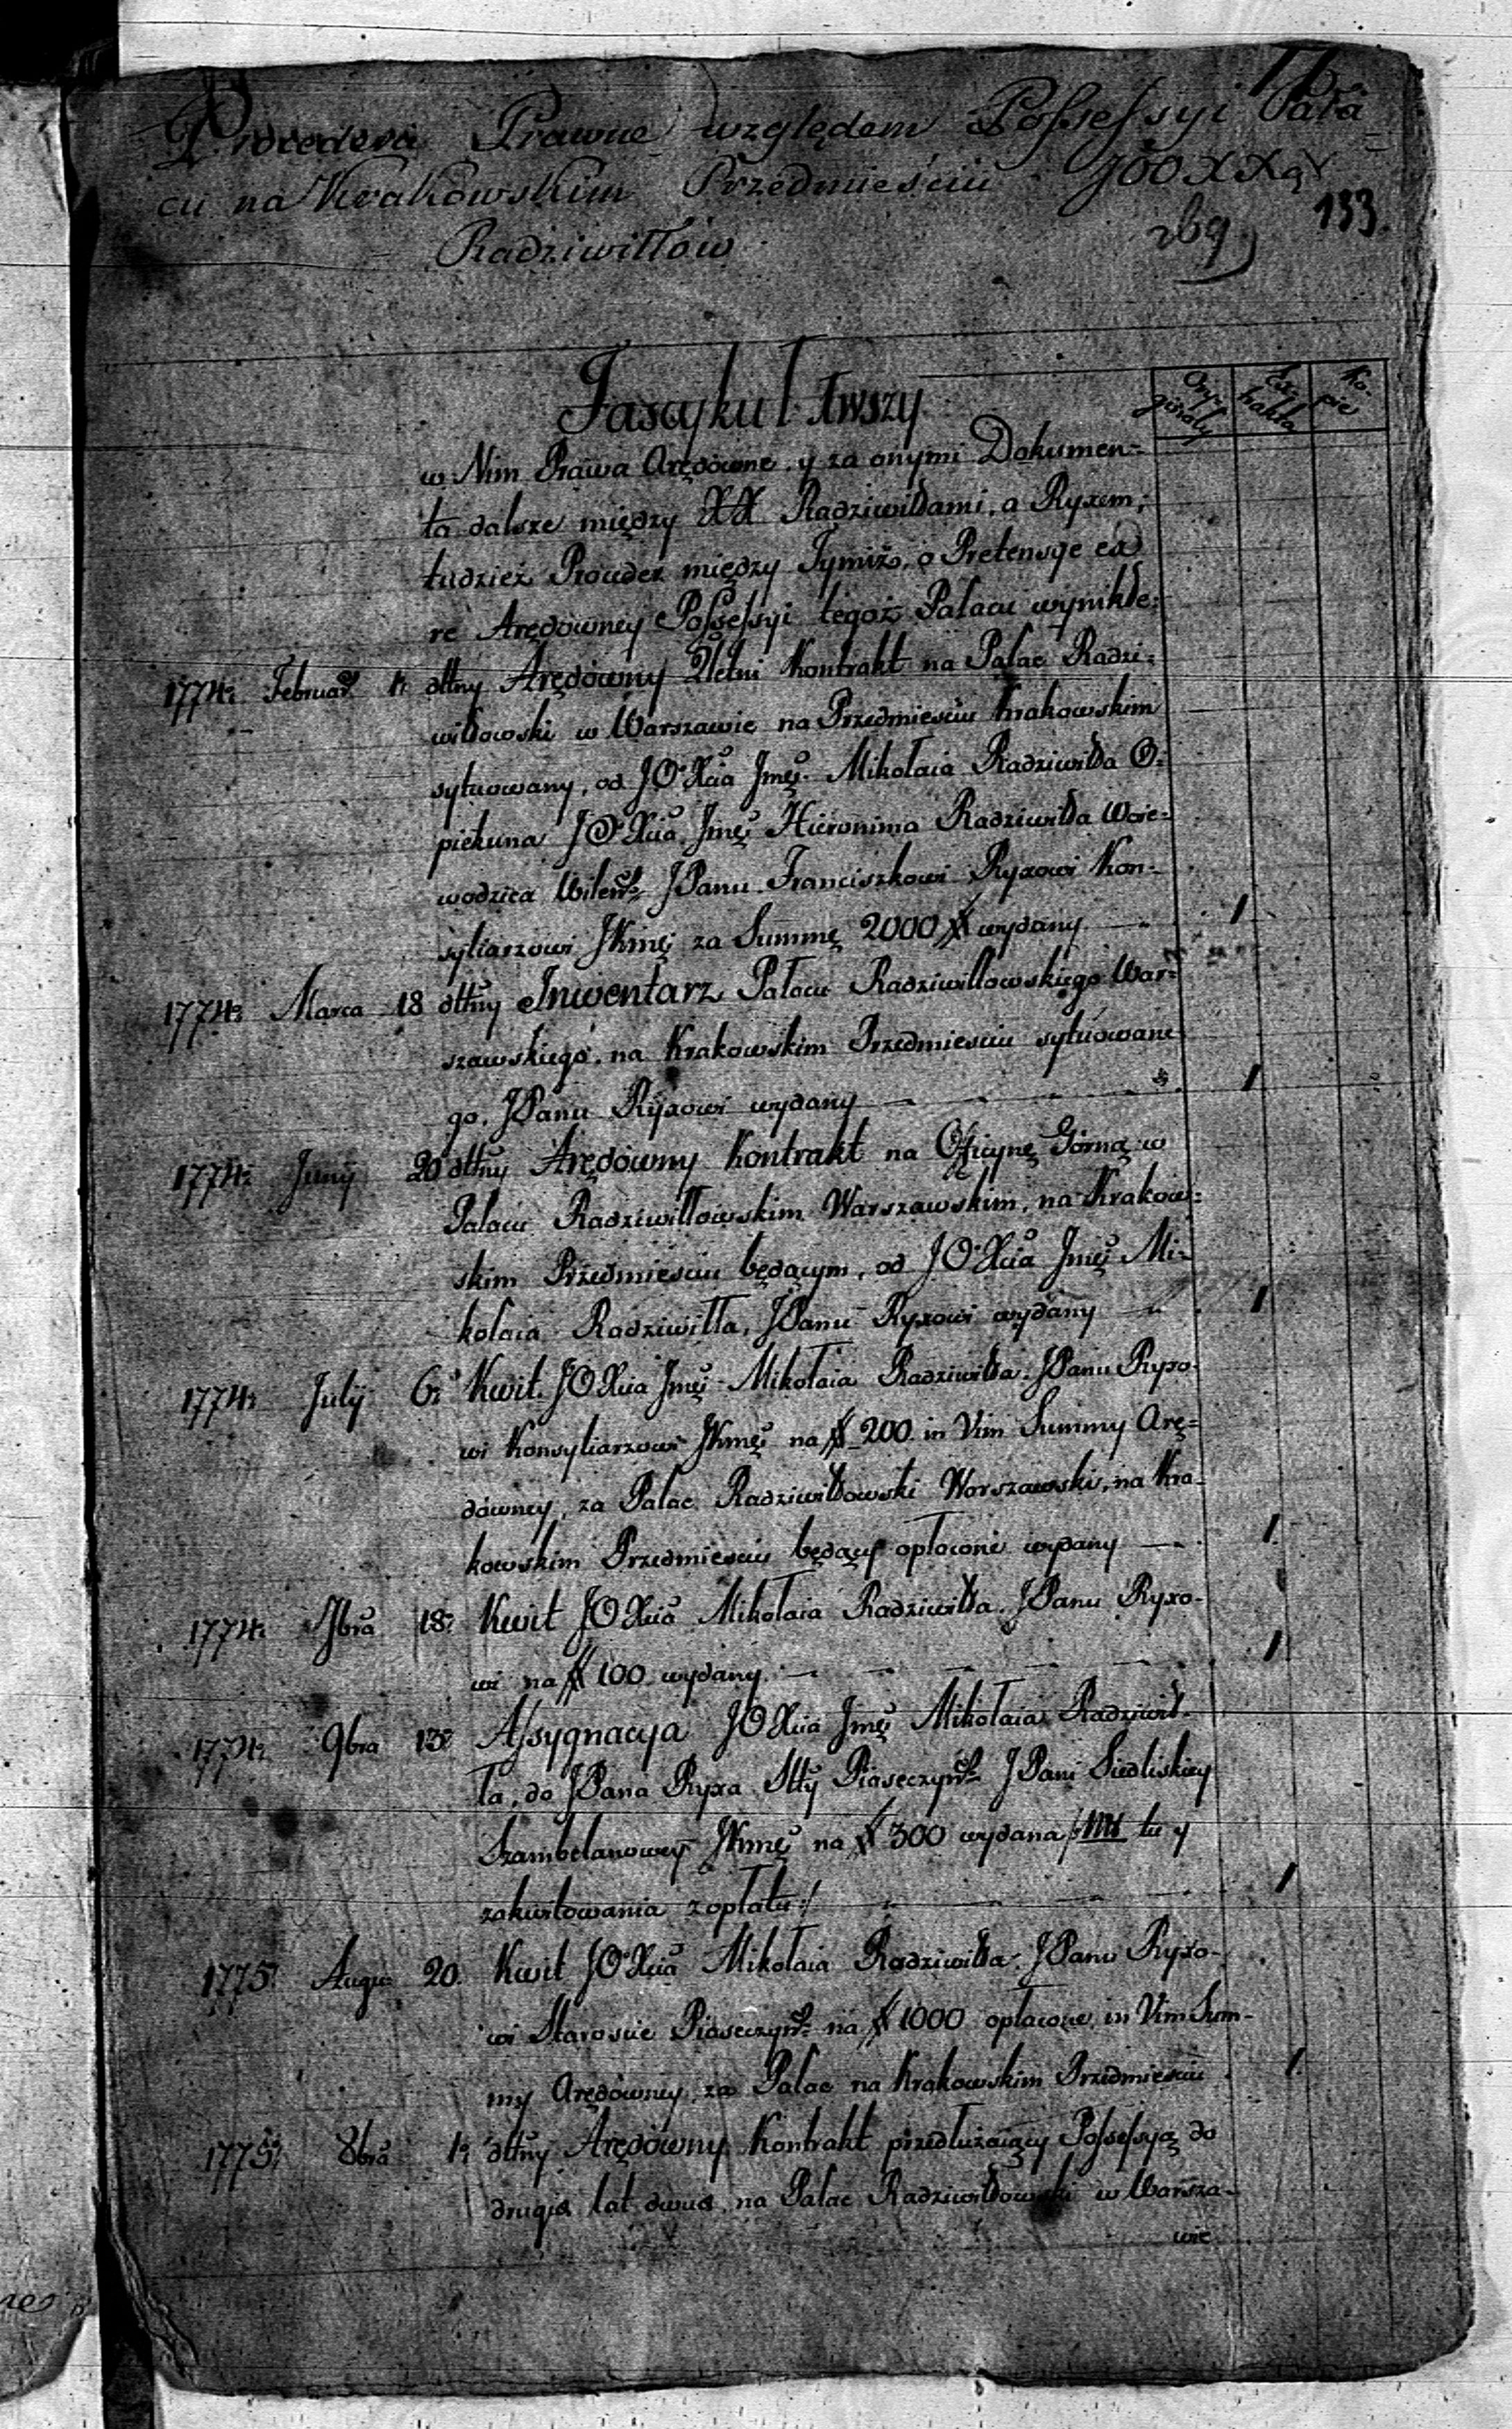 Procedera Prawne względem Possessyi Pała=
cu na Krakowskim Przedmieściu JOO XXąt
Radziwiłłów
269
133.
Fascykuł 1wszy
Ory-
ginały
Ext-
trakta
Ko-
pie
w Nim Prawa Arędowne, y za onymi Dokumen=
ta dalsze między XX Radziwiłłami, a Ryxem,
tudzież Proceder między Tymiż, o Pretensye ex
re Arędowney Possessyi tegoż Pałacu wynikłe:
1774: Februar. 1: dttny Arędowny 2letni Kontrakt na Pałac Radzi=
wiłłowski w Warszawie na Przedmiesciu Krakowskim
sytuowany, od JO Xcia Jmci Mikołaia Radziwiłła O=
piekuna JO Xcia Jmci Hieronima Radziwiłła Woie=
wodzica Wileńk: JPanu Franciszkowi Ryxowi Kon=
syliarzowi JKmci za Summę 2000 # wydany — 1
1774: Marca 18 dttny Inwentarz Pałacu Radziwiłłowskiego War=
szawskiego, na Krakowskim Przedmiesciu sytuowane
go, JPanu Ryxowi wydany — 1
1774: Junij 20 dttny Arędowny Kontrakt na Oficynę Górną w
Pałacu Radziwiłłowskim Warszawskim, na Krakow=
skim Przedmiesciu będącym, od JO Xcia Jmci Mi=
kołaia Radziwiłła, JPanu Ryxowi wydany — 1
1774: Julij 6: Kwit JO Xcia Jmci Mikołaia Radziwiłła JPanu Ryxo-
wi Konsyliarzowi JKmci na # 200 in Vim Summy Arę=
downey, za Pałac Radziwiłłowski Warszawski, na Kra-
kowskim Przedmiesciu będący opłacone wydany — 1.
1774: 7bra 18: Kwit JO Xcia Mikołaia Radziwiłła JPanu Ryxo-
wi na # 100 wydany. — 1
1774: 9bra 13: Assygnacya JO Xcia Jmci Mikołaia Radziwił-
ła, do JPana Ryxa Stty Piaseczyńk: JPani Siedliskiey
Szambelanowey JKmci na # 300 wydana tu y
zakwitowania z opłatu :/ — 1
1775: Augu: 20. Kwit JO Xcia Mikołaia Radziwiłła JPanu Ryxo-
wi Staroscie Piaseczyńk: na # 1000 opłacone in Vim Sum-
my Arędowney za Pałac na Krakowskim Przedmiesciu 1.
1775: 8bra 1: dttny Arędowny Kontrakt przedłużaiący Possessyą do
drugich lat dwuch na Pałac Radziwiłłowski w Warsza-
wie